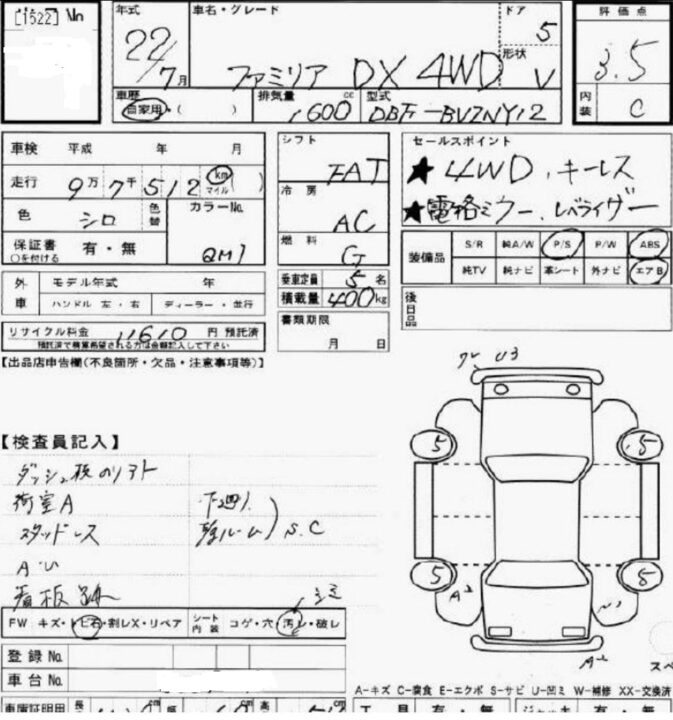 [1522] No
年式 22/7月
車名・グレード ファミリア DX 4WD
ドア 5
形状 V
評価点 3.5
内装 C
車歴 自家用・( )
排気量 1600 cc
型式 DBF-BVZNY12
車検 平成 年 月
走行 9万7千512 km マイル ( )
色 シロ 色替 カラーNo. QM1
保証書 有・無
○を付ける
シフト FAT
冷房 AC
燃料 G
セールスポイント
★4WD、キーレス
★電格ミラー、レベライザー
装備品 S/R 純A/W P/S P/W ABS
純TV 純ナビ 革シート 外ナビ エアB
外車 モデル年式 年
ハンドル 左・右 ディーラー・並行
乗車定員 5名
積載量 400kg
後日品
リサイクル料金 11610 円 預託済
預託済で積算希望される方は金額記入して下さい
書類期限
月 日
【出品店申告欄(不良箇所・欠品・注意事項等)】
U3
【検査員記入】
ダッシュ板のリフト
荷室A 下廻り
スタッドレス S.C
A.U
看板跡 シミ
5 5
5 5
FW キズ・トビ石・割レX・リペア シート内装 コゲ・穴・汚レ・破レ
登録No.
車台No.
スペ
A-キズ C-腐食 E-エクボ S-サビ U-凹ミ W-補修 XX-交換済
車庫証明用 長 cm 幅 cm 高 cm
工具 有・無 ジャッキ 有・無